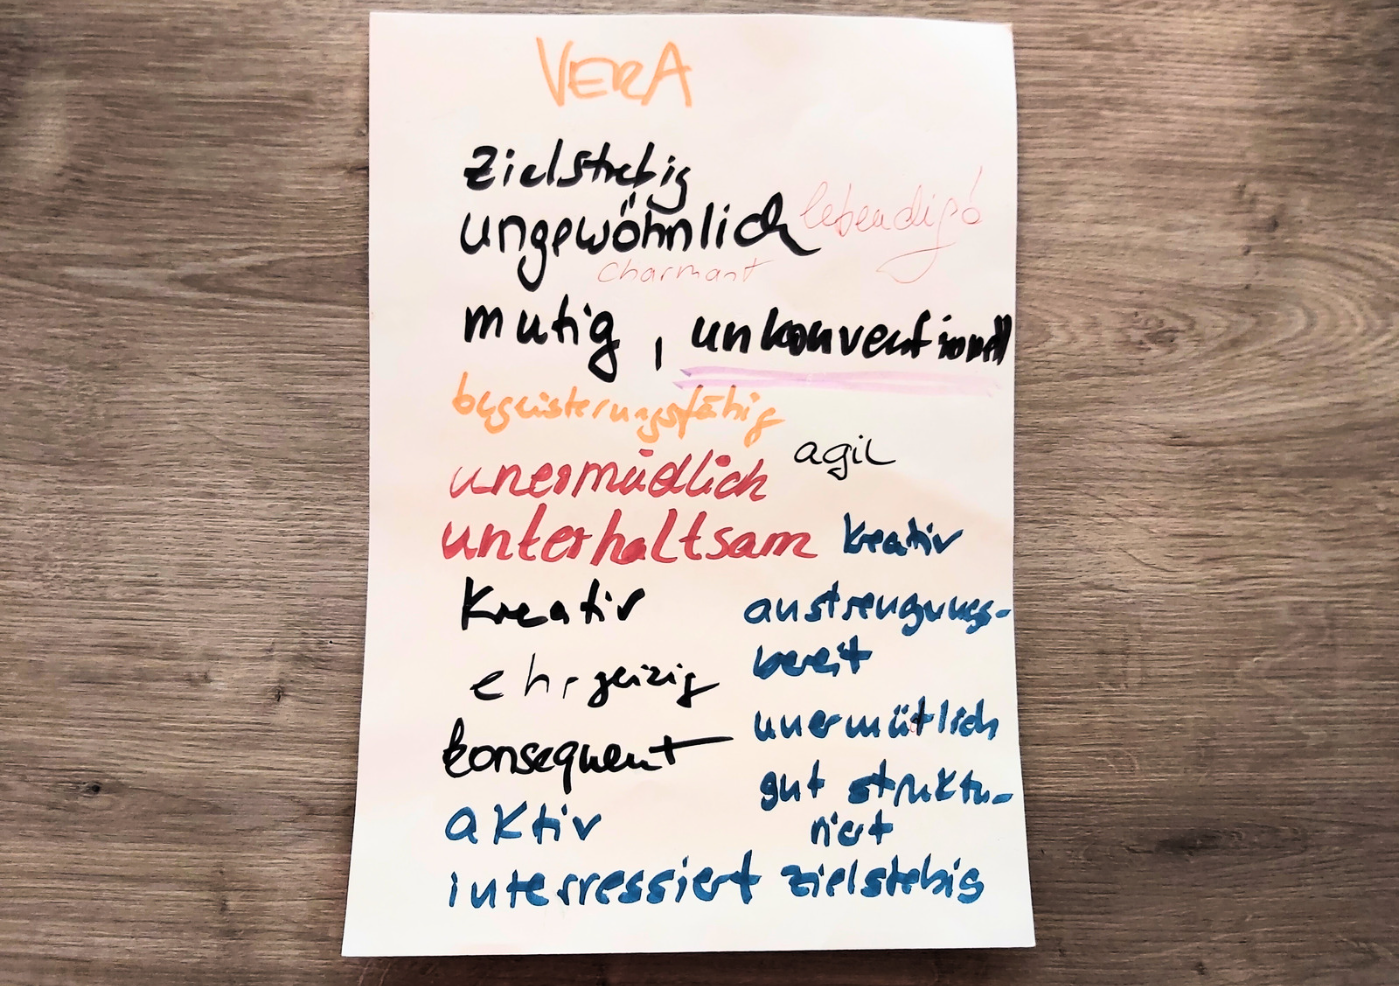 VERA
zielstrebig
ungewöhnlich lebendig!
charmant
mutig, unkonventionell
begeisterungsfähig
agil
unermüdlich
unterhaltsam kreativ
kreativ anstrengungs-
bereit
ehrgeizig
unermütlich
konsequent
gut struktu-
riert
aktiv
interressiert zielstebig